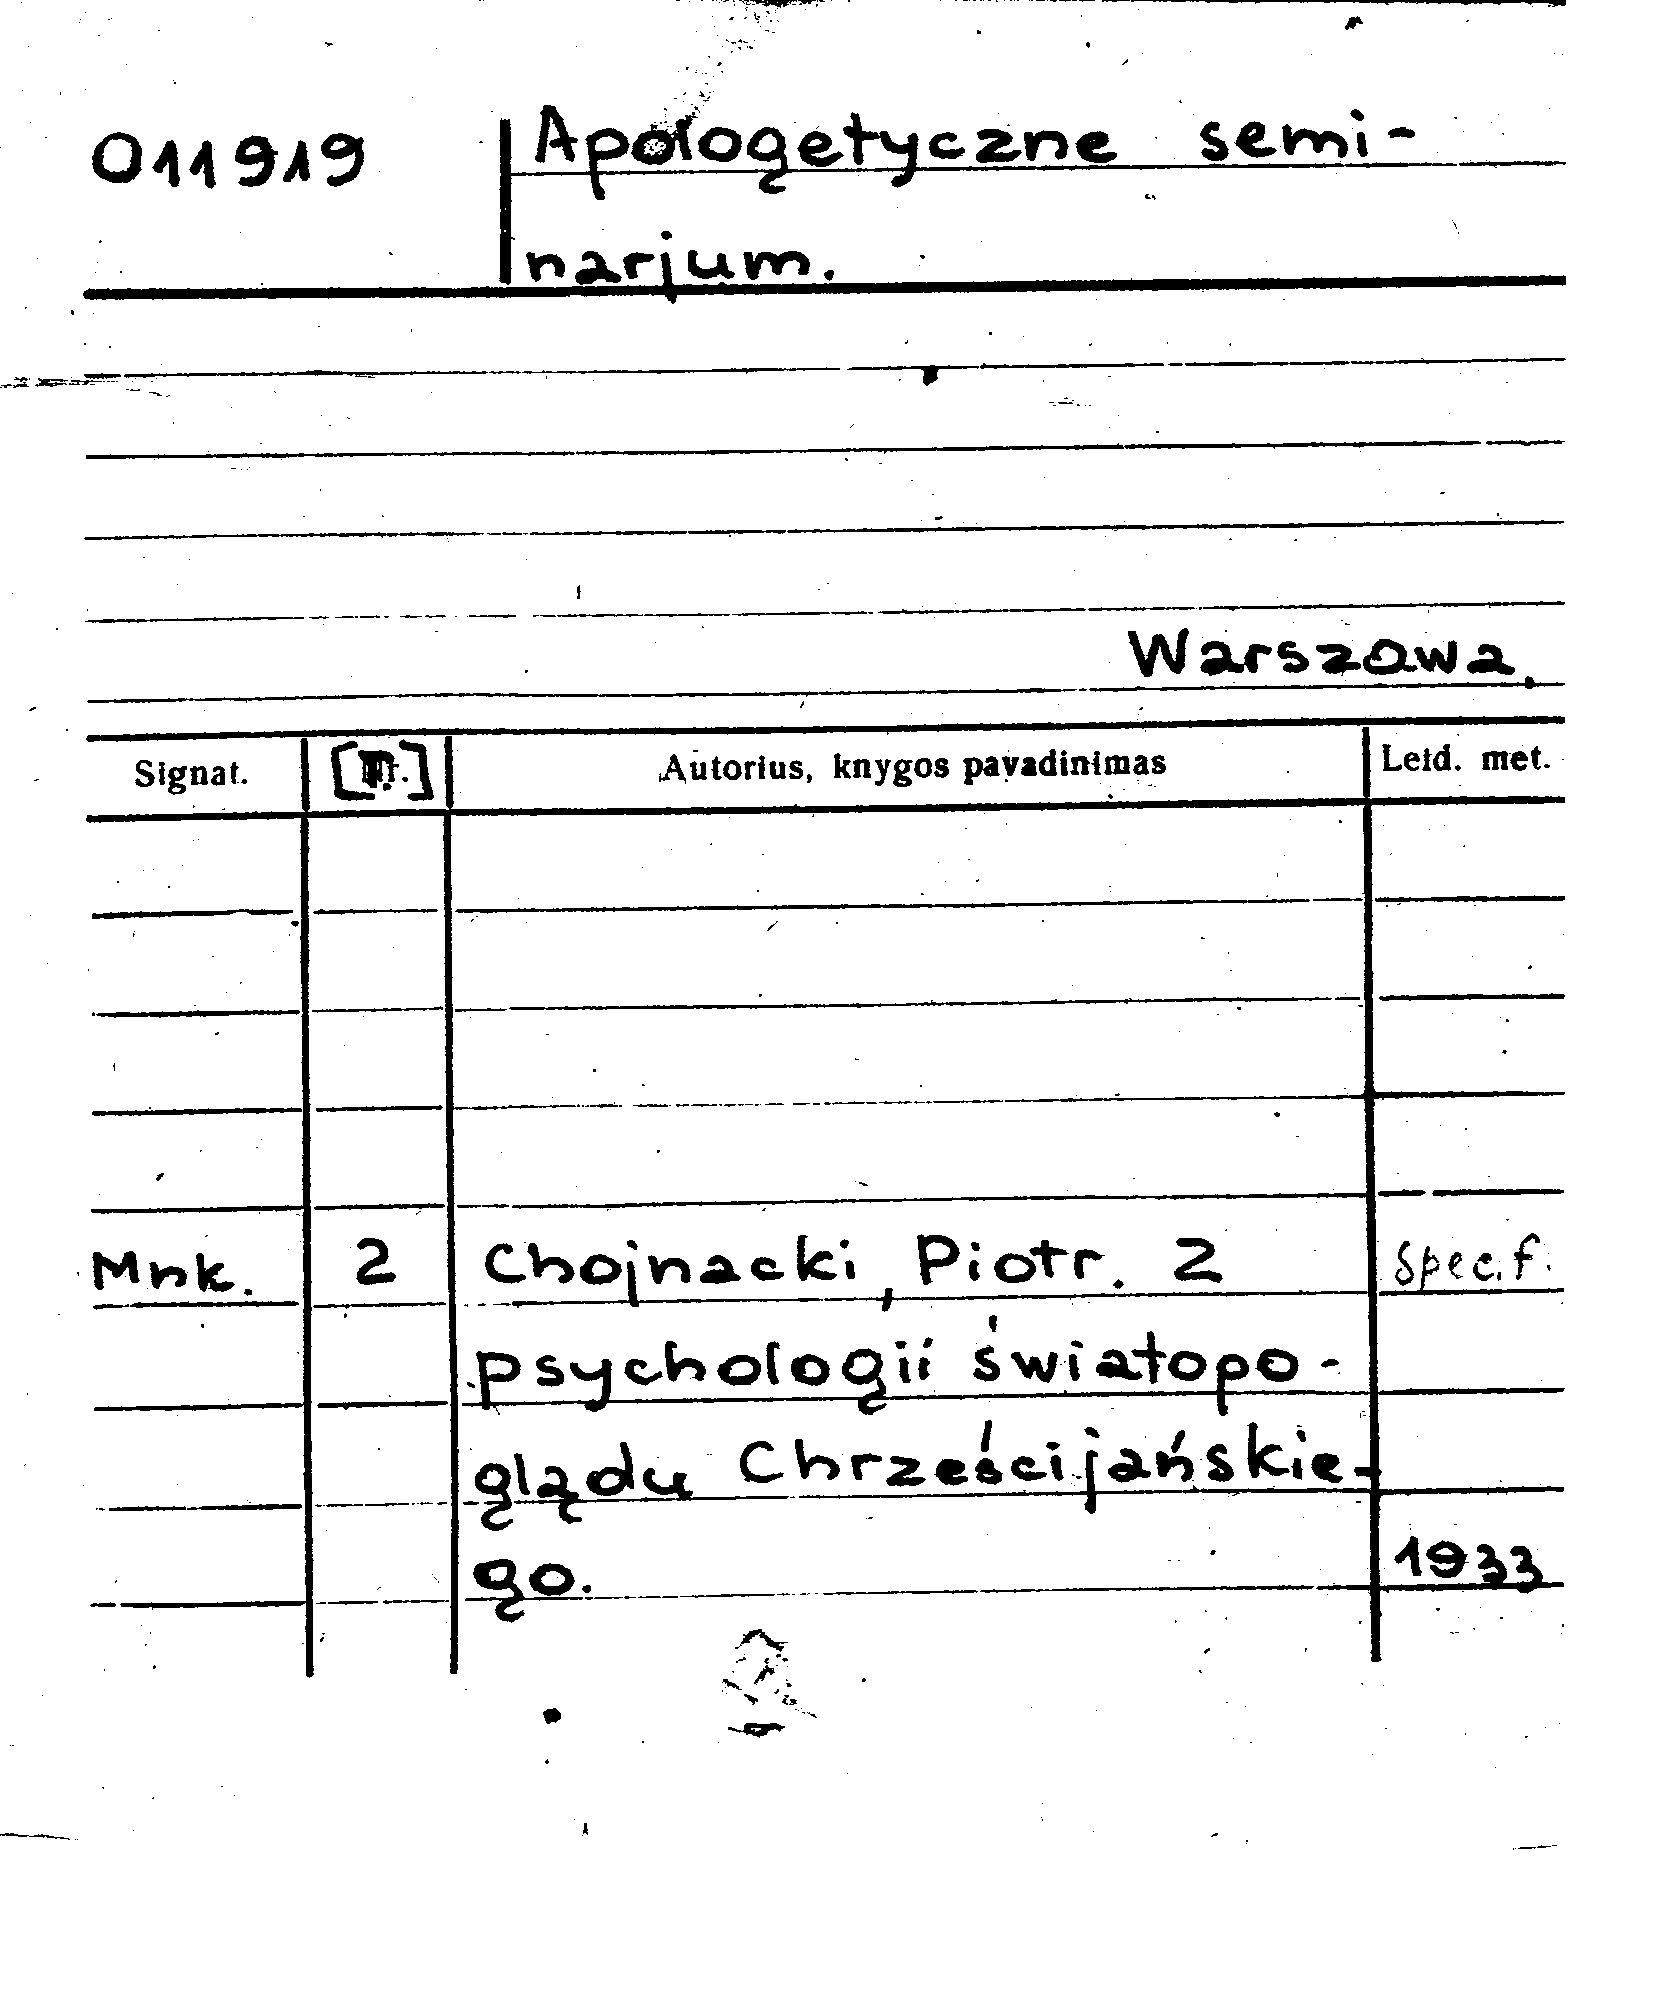 011919 Apologetyczne semi-
narjum.
Warszawa.
Signat. [T.] Autorius, knygos pavadinimas Leid. met.
Mnk. 2 Chojnacki, Piotr. Z Spec.f.
psychologii światopo-
glądu Chrześcijańskie-
go. 1933